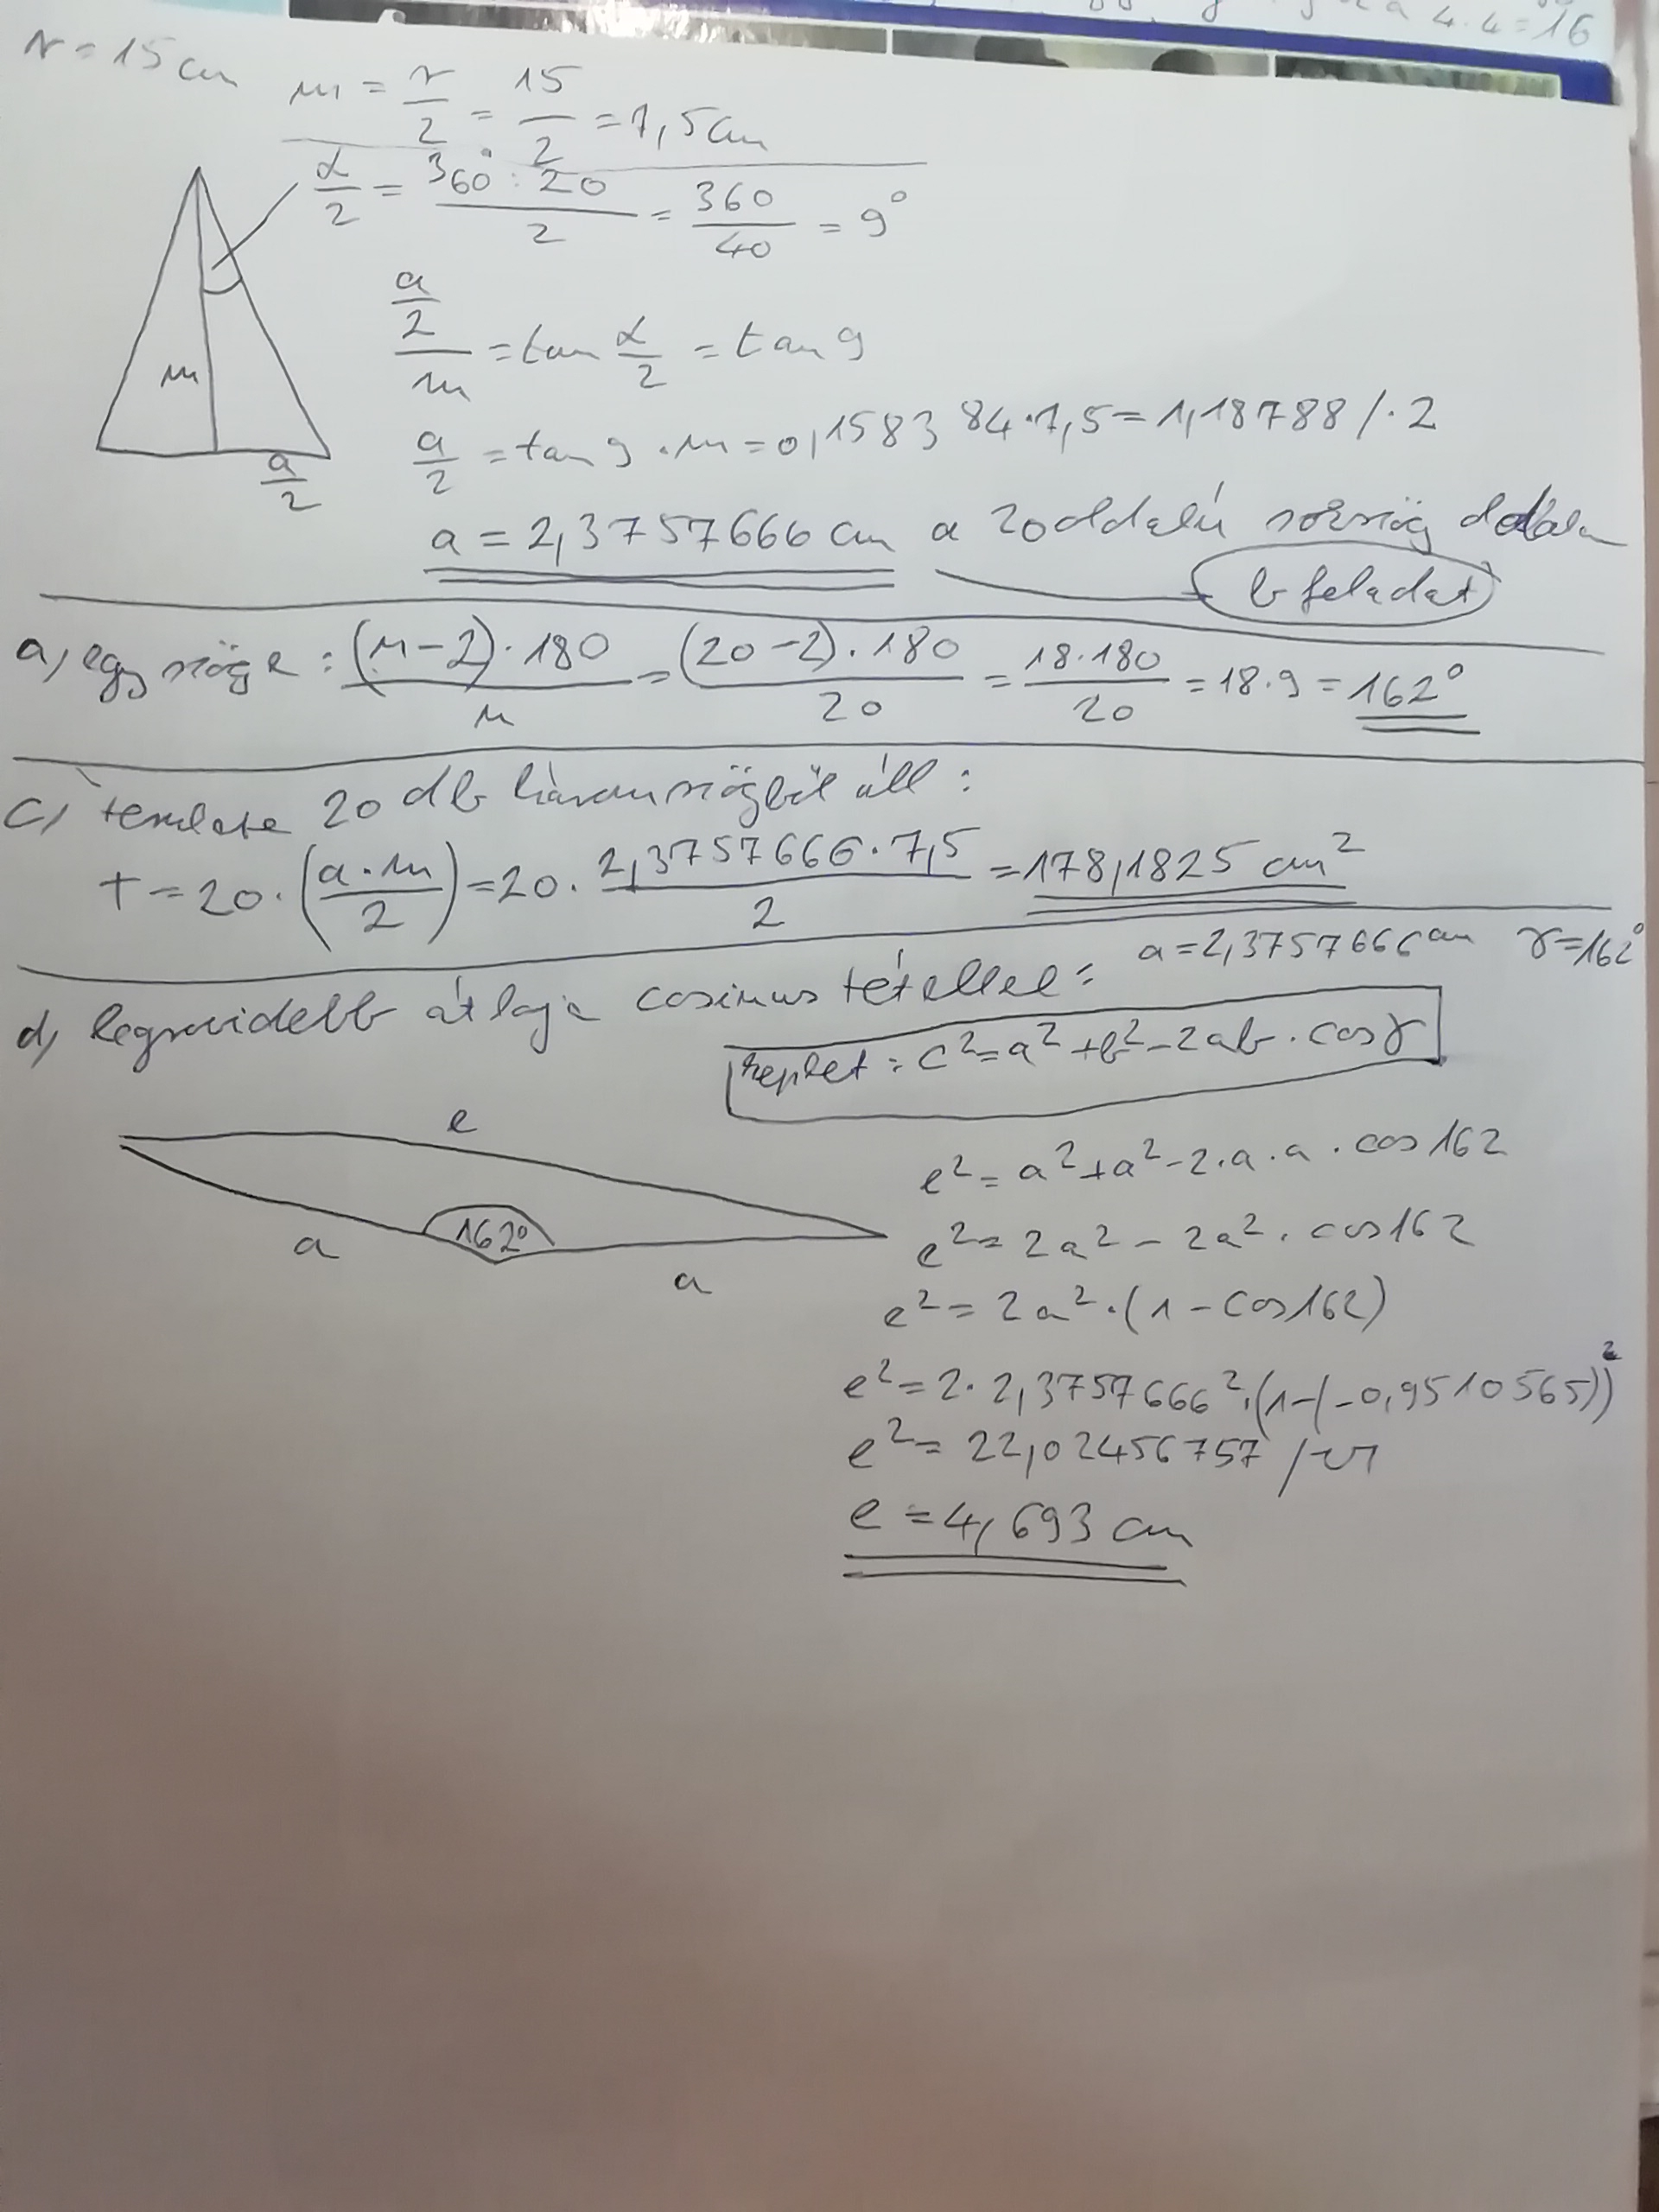 4.4=16
r=15cm m = r/2 = 15/2 = 7,5cm
α/2 = (360°:20)/2 = 360/40 = 9°
(a/2)/m = tan α/2 = tan 9
m
a/2 = tan 9 · m = 0,158384·7,5=1,18788 /·2
a/2
a = 2,3757666 cm a 20 oldalú sokszög oldala
b feladat
a, egy szöge: ((n-2)·180)/n = ((20-2)·180)/20 = (18·180)/20 = 18·9 = 162°
c, területe 20 db háromszögből áll:
T = 20·(a·m/2) = 20·(2,3757666·7,5)/2 = 178,1825 cm²
d, legrövidebb átlója cosinus tétellel: a=2,3757666cm γ=162°
képlet: c²=a²+b²-2ab·cosγ
e
a 162° a
e² = a²+a²-2·a·a·cos162
e² = 2a² - 2a²·cos162
e² = 2a²·(1-cos162)
e² = 2·2,3757666²·(1-(-0,9510565))²
e² = 22,02456757 /√
e = 4,693 cm